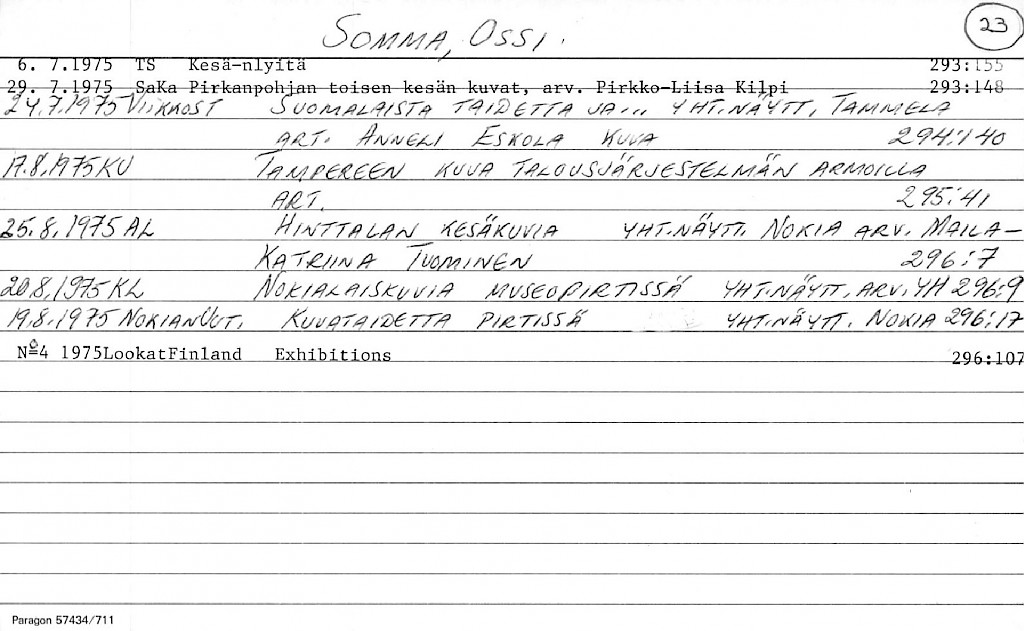 SOMMA, OSSI.
23
6. 7.1975 TS Kesä-nlyitä 293:155
29. 7.1975 SaKa Pirkanpohjan toisen kesän kuvat, arv. Pirkko-Liisa Kilpi 293:148
24.7.1975 VIIKKOST SUOMALAISTA TAIDETTA JA... YHT.NÄYTT, TAMMELA
ART. ANNELI ESKOLA KUVA 294:140
17.8.1975 KU TAMPEREEN KUVA TALOUSJÄRJESTELMÄN ARMOILLA
ART. 295:41
25.8.1975 AL HINTTALAN KESÄKUVIA YHT.NÄYTT. NOKIA ARV. MAILA-
KATRIINA TUOMINEN 296:7
20.8.1975 KL NOKIALAISKUVIA MUSEOPIRTISSÄ YHT.NÄYTT, ARV. YH 296:9
19.8.1975 NOKIANUUT. KUVATAIDETTA PIRTISSÄ YHT.NÄYTT. NOKIA 296:17
No4 1975LookatFinland Exhibitions 296:107
Paragon 57434/711